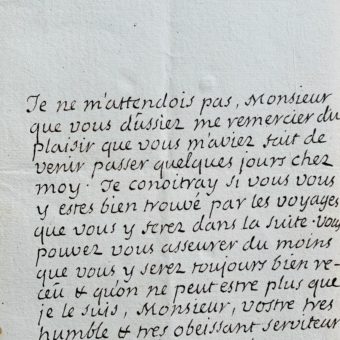 Je ne m'attendois pas, Monsieur
que vous dussiez me remercier du
plaisir que vous m'aviez fait de
venir passer quelques jours chez
moy. Je conoitray si vous vous
y estes bien trouvé par les voyages
que vous y ferez dans la suite. Vous
pouvez vous asseurer du moins
que vous y serez toujours bien re-
ceü & qu'on ne peut estre plus que
je le suis, Monsieur, vostre tres
humble & tres obeissant serviteur